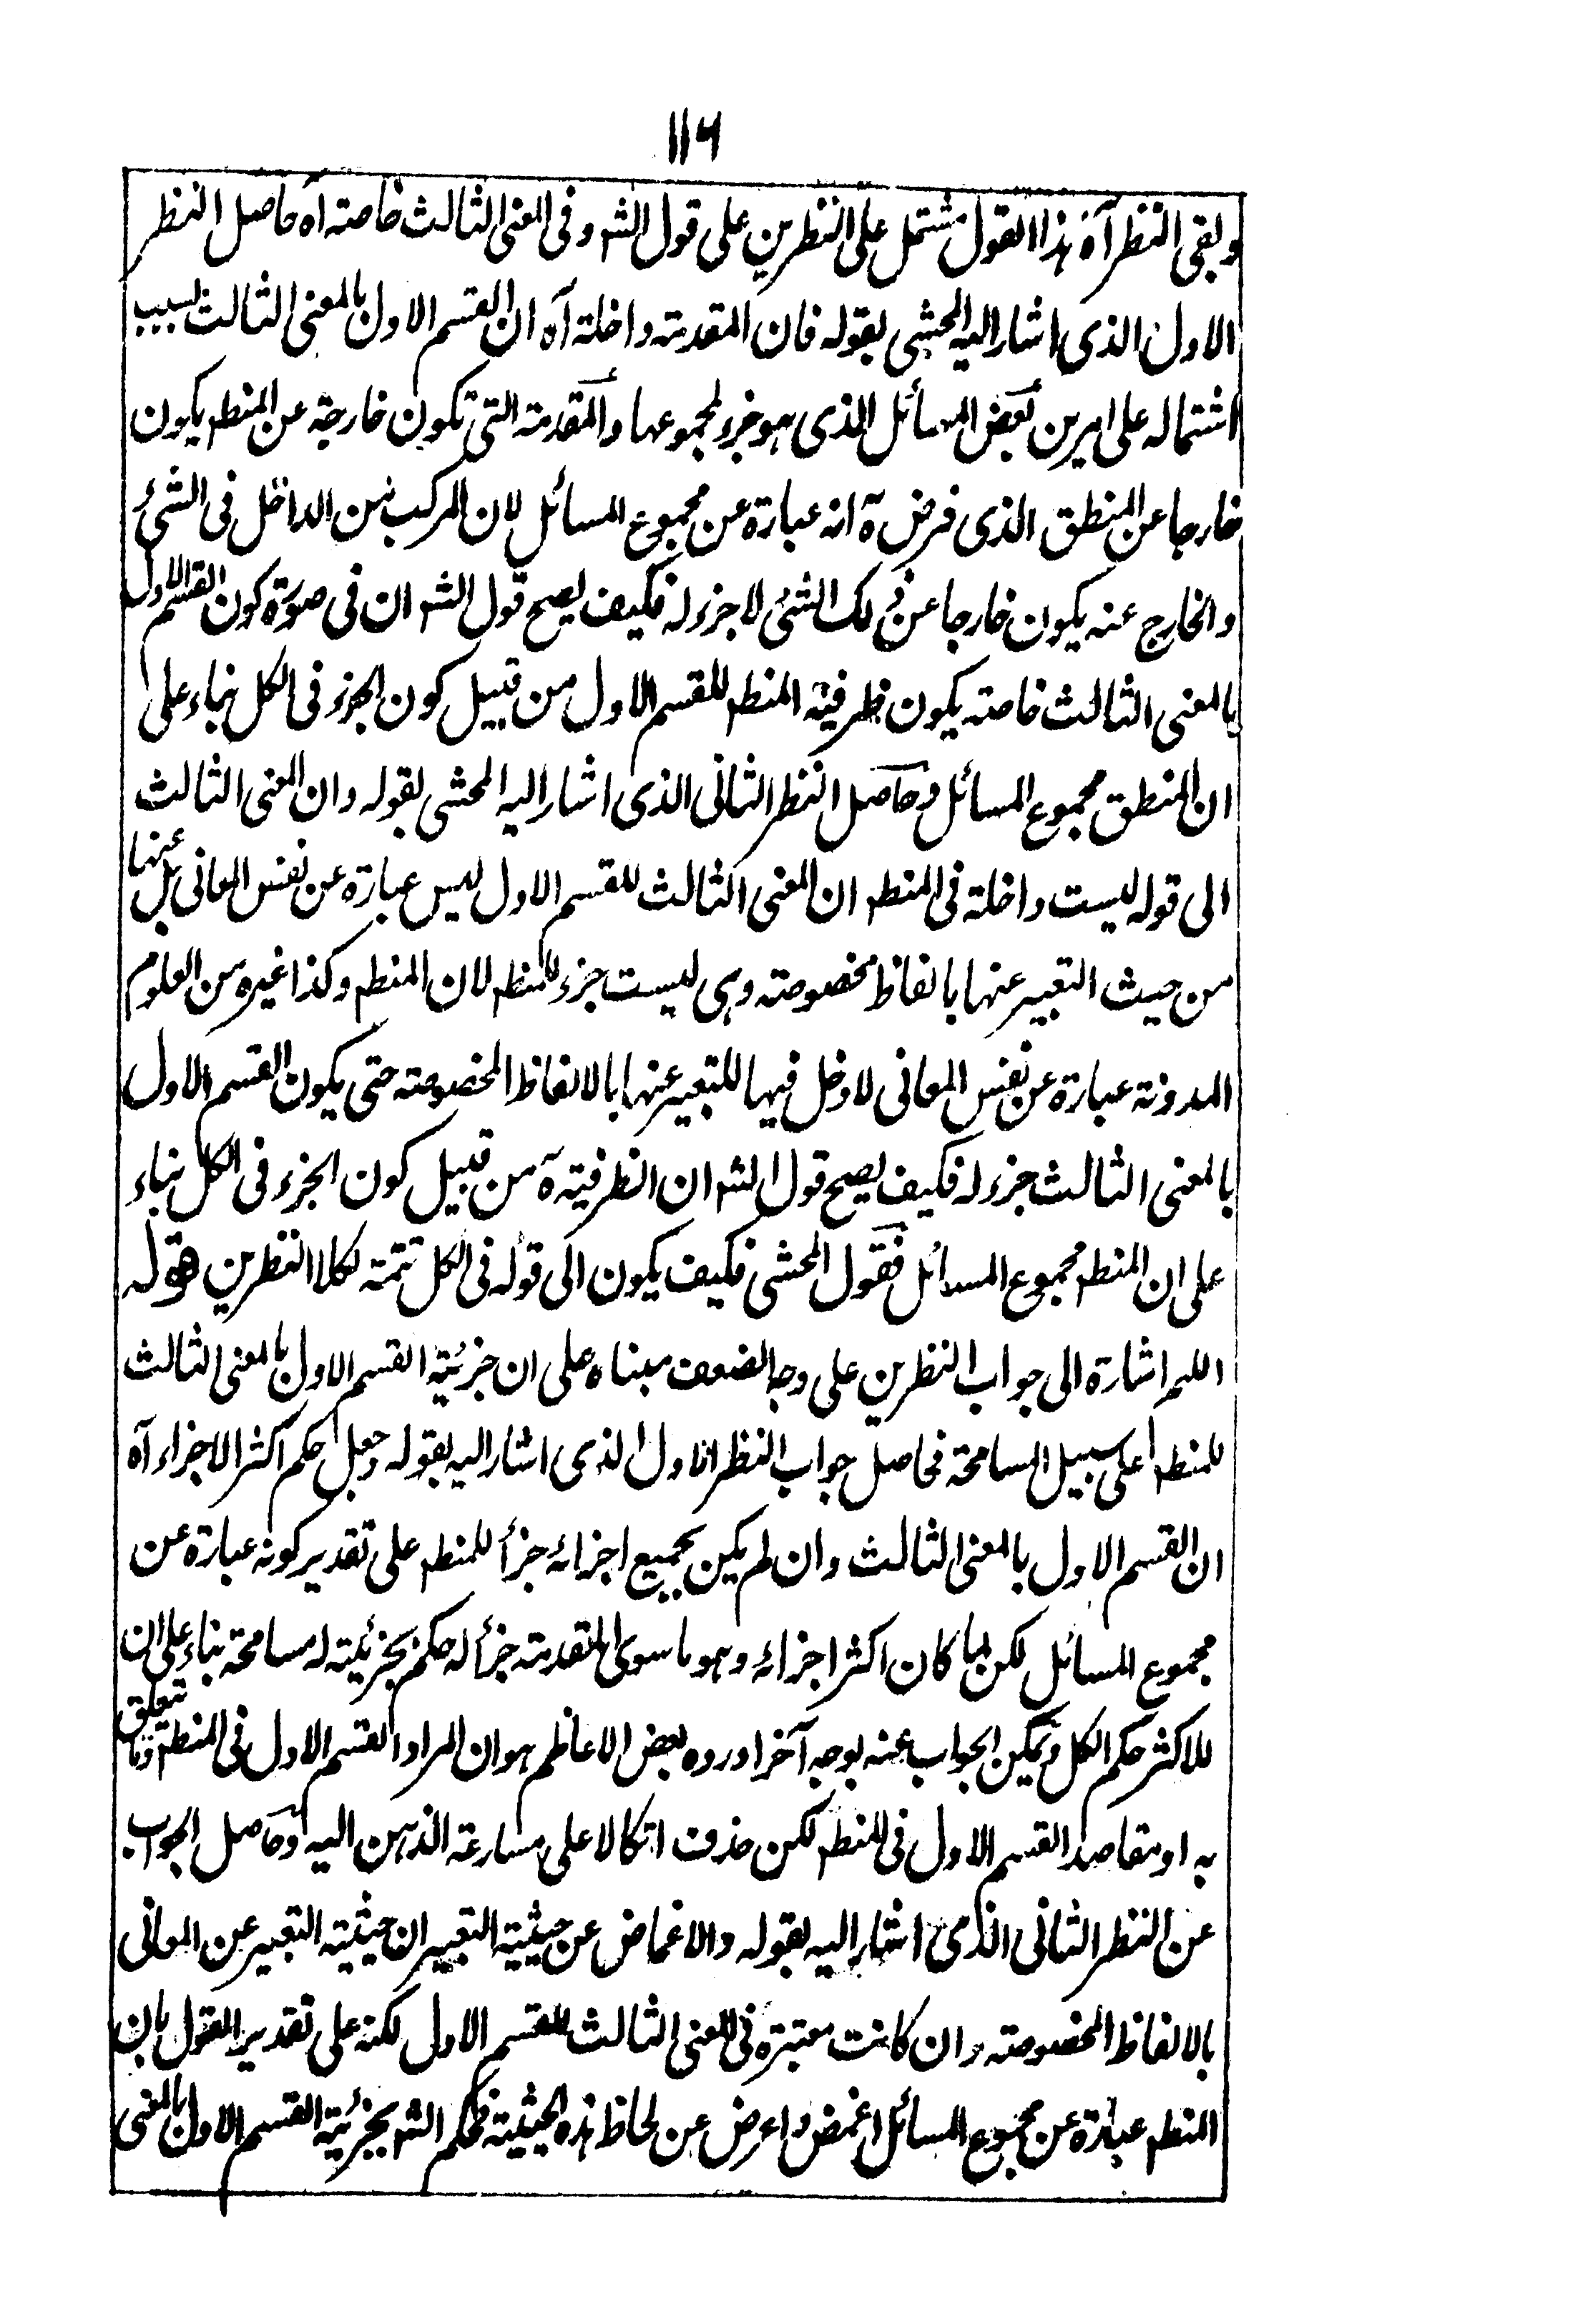 ۱۱۶
وبقى النظر آه هذا القول مشتمل على النظرين على قول الشه وفى المعنى الثالث خاصته آه حاصل النظر
الاول الذى اشار اليه المحشى بقوله فان المقدمة داخلة آه ان القسم الاول بالمعنى الثالث بسبب
اشتماله على امرين بعض المسائل الذى هو جزء لمجموعها والمقدمة التى تكون خارجة عن المنطه يكون
خارجا عن المنطق الذى فرض ة انه عبارة عن مجموع المسائل لان المركب من الداخل فى الشئ
والخارج عنه يكون خارجا عن ذلك الشئ لا جزء له فكيف يصح قول الشه ان فى صورة كون القسم الاول
بالمعنى الثالث خاصته يكون ظرفية المنطه للقسم الاول من قبيل كون الجزء فى الكل بناء على
ان المنطق مجموع المسائل وحاصل النظر الثانى الذى اشار اليه المحشى بقوله وان المعنى الثالث
الى قوله ليست داخلة فى المنطه ان المعنى الثالث للقسم الاول ليس عبارة عن نفس المعانى بل عنها
من حيث التعبير عنها بالفاظ مخصوصته وهى ليست جزء للمنطه لان المنطه وكذا غيره من العلوم
المدونة عبارة عن نفس المعانى لا دخل فيها للتعبير عنها بالالفاظ المخصوصته حتى يكون القسم الاول
بالمعنى الثالث جزء له فكيف يصح قول الشه ان الظرفية ة من قبيل كون الجزء فى الكل بناء
على ان المنطه مجموع المسائل فقول المحشى فكيف يكون الى قوله فى الكل تتمة لكلا النظرين قوله
اللهم اشارة الى جواب النظرين على وجه الضعف مبناه على ان جزئية القسم الاول بالمعنى الثالث
للمنطه على سبيل المسامحة فحاصل جواب النظر الاول الذى اشار اليه بقوله وجعل حكم اكثر الاجزاء آه
ان القسم الاول بالمعنى الثالث وان لم يكن بجميع اجزائه جزأ للمنطه على تقدير كونه عبارة عن
مجموع المسائل لكن لما كان اكثر اجزائه وهو ما سوى المقدمة جزأ له حكم بجزئيته له مسامحة بناء على ان
للاكثر حكم الكل ويمكن الجواب عنه بوجه آخر اورده بعض الاعاظم هو ان المراد القسم الاول فى المنطه وما يتعلق
به او مقاصد القسم الاول فى المنطه لكن حذف اتكالا على مسارعة الذهن اليه وحاصل الجواب
عن النظر الثانى الذى اشار اليه بقوله والاغماض عن حيثية التعبير ان حيثية التعبير عن المعانى
بالالفاظ المخصوصته وان كانت معتبرة فى المعنى الثالث للقسم الاول لكنه على تقدير القول بان
المنطه عبارة عن مجموع المسائل اغمض واعرض عن لحاظ هذه الحيثية فحكم الشه بجزئية القسم الاول بالمعنى